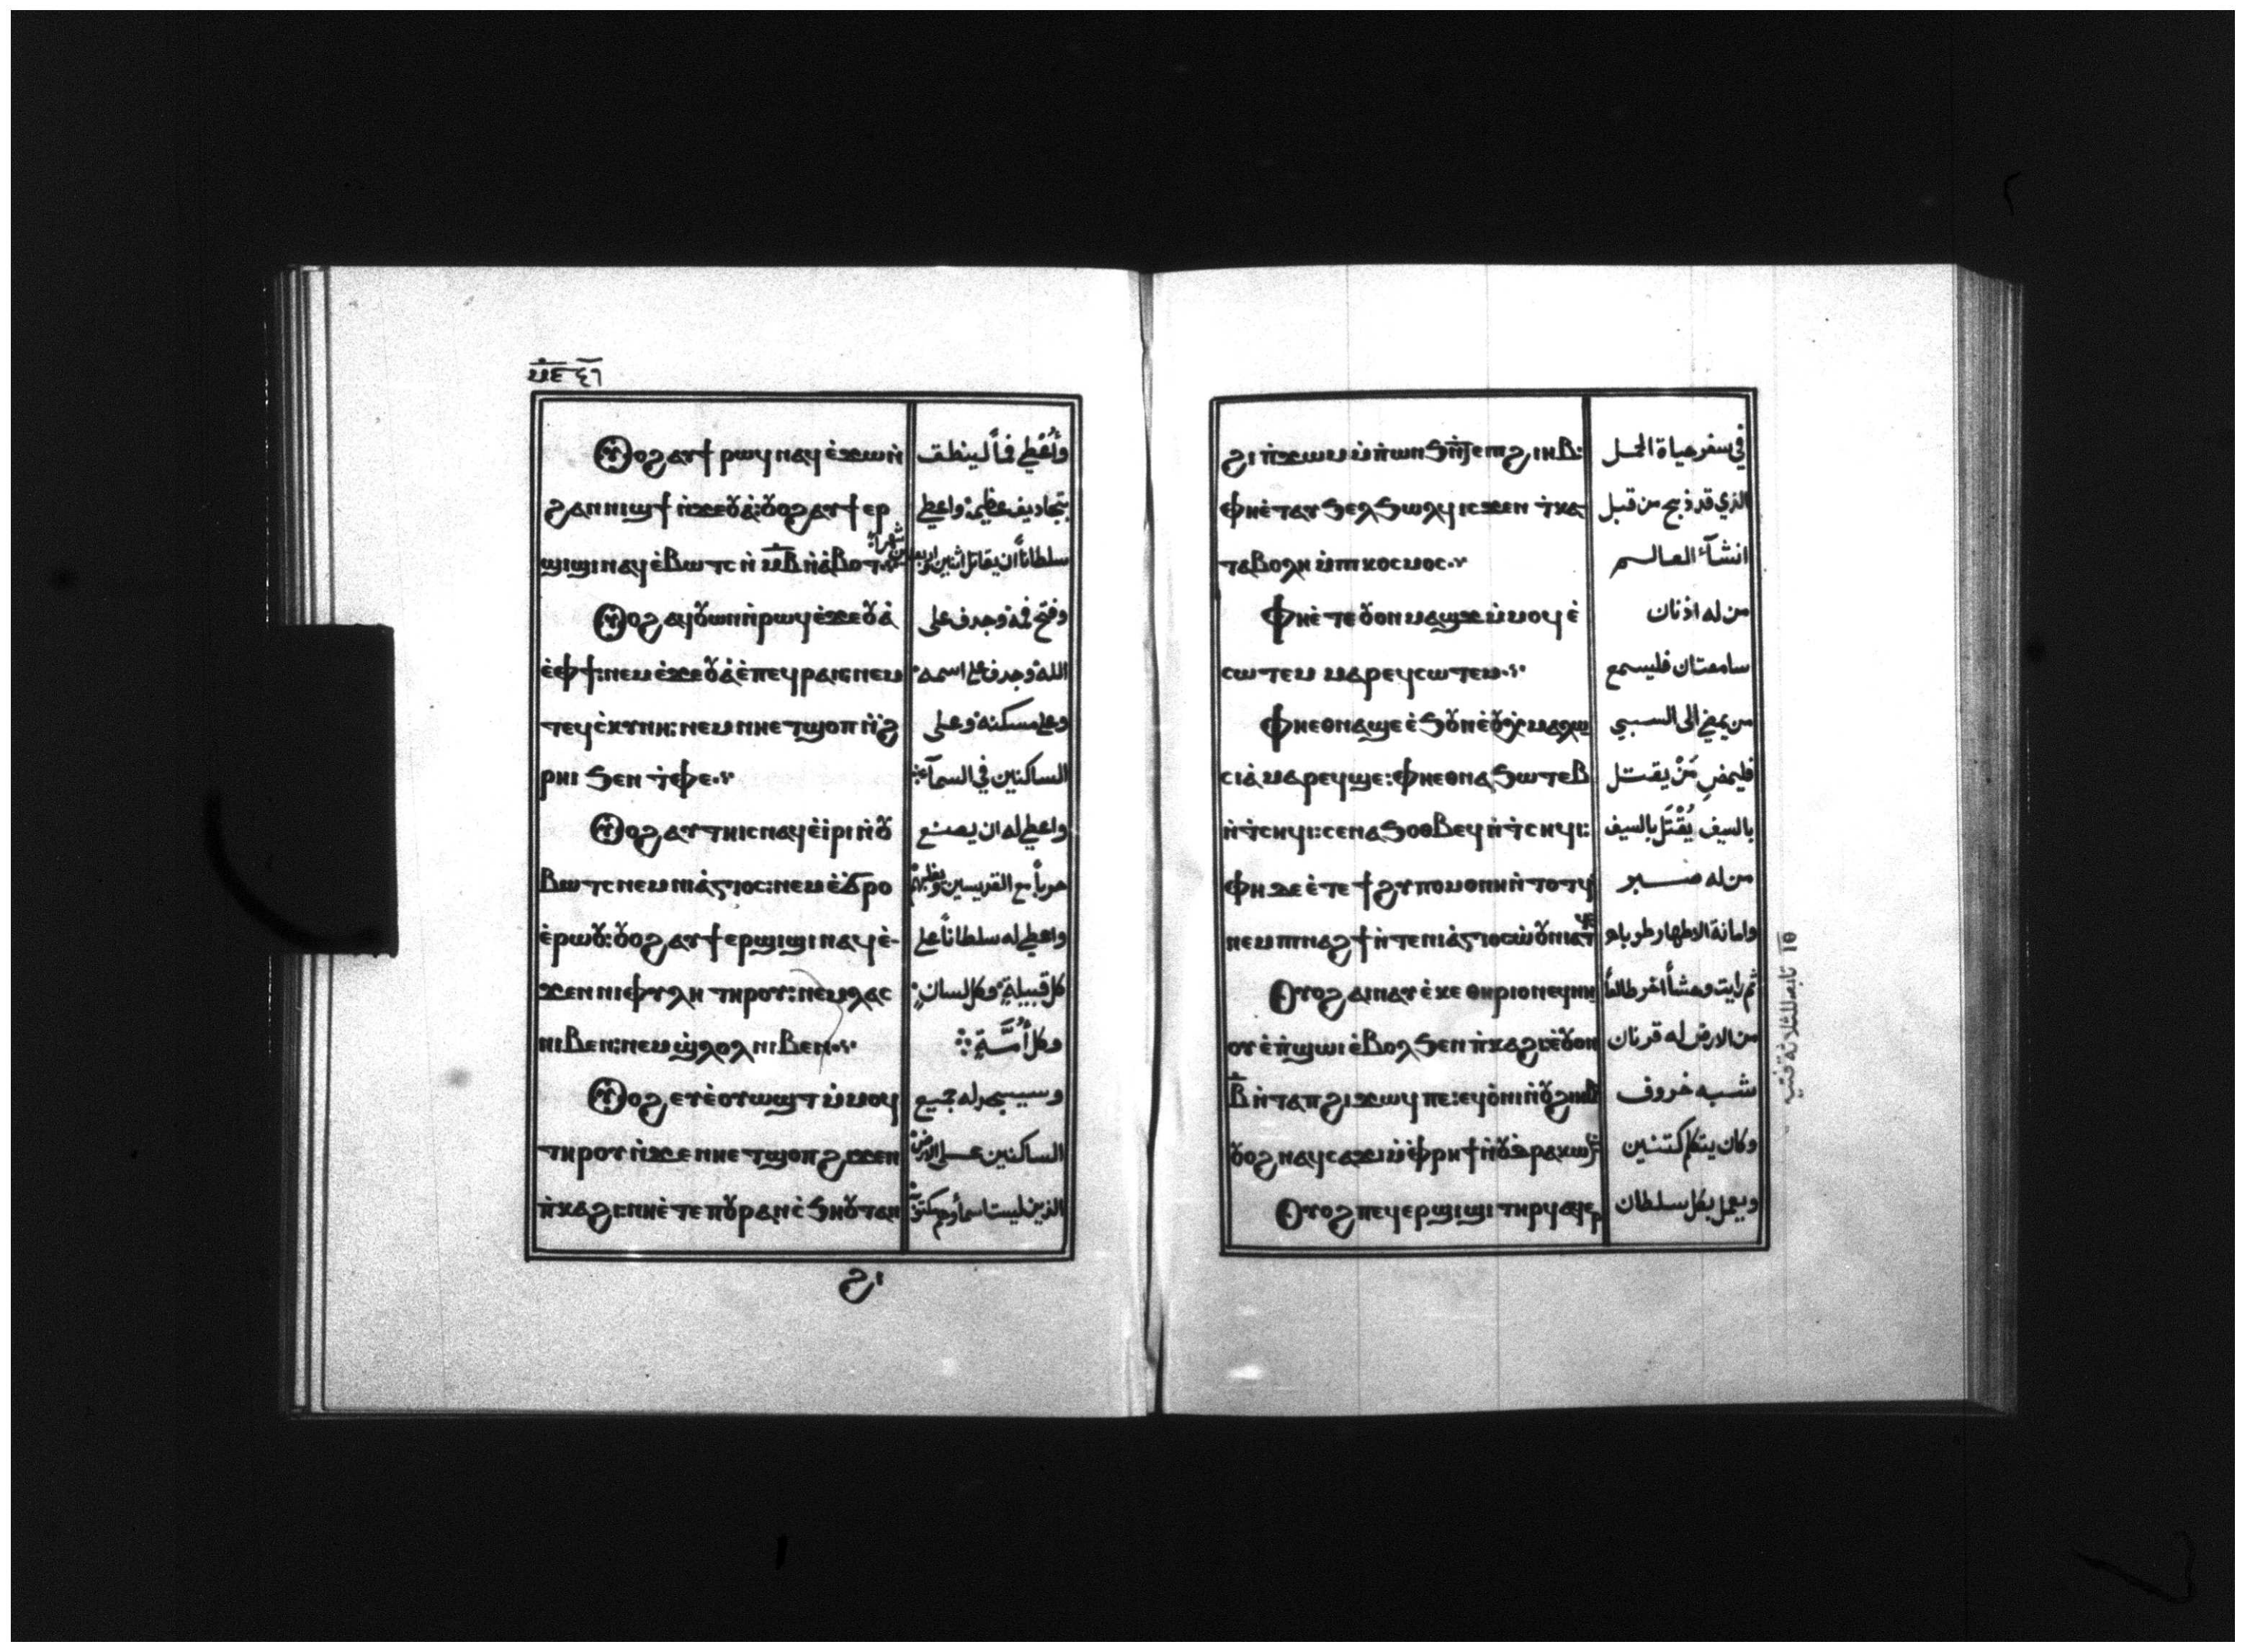 ٤٦
ⲟⲩⲟϩ ⲁⲩϯ ⲣⲱϥ ⲛⲁϥ ⲉ̀ϫⲱⲛ̀
ϩⲁⲛⲛⲓϣϯ ⲛ̀ϫⲉⲟⲩⲁ̀: ⲟⲩⲟϩ ⲁⲩϯ ⲉⲣ
ϣⲓϣⲓ ⲛⲁϥ ⲉ̀ⲃⲱⲧⲥ ⲛ̀ ⲙ̅ⲃ̅ ⲛ̀ⲁ̀ⲃⲟⲧ
ⲟⲩⲟϩ ⲁϥⲟⲩⲱⲛ ⲛ̀ⲣⲱϥ ⲉ̀ϫⲉⲟⲩⲁ̀
ⲉ̀ⲫϯ: ⲛⲉⲙ ⲉ̀ϫⲉⲟⲩⲁ̀ ⲉ̀ⲡⲉϥⲣⲁⲛ: ⲛⲉⲙ
ⲧⲉϥⲥ̀ⲕⲩⲛⲏ: ⲛⲉⲙ ⲛⲏⲉⲧϣⲟⲡ ⲛ̀ϩ̀
ⲣⲏⲓ ϧⲉⲛ ⲧ̀ⲫⲉ
ⲟⲩⲟϩ ⲁⲩⲧⲏⲓⲥ ⲛⲁϥ ⲉ̀ⲓ̀ⲣⲓ ⲛ̀ⲟⲩ
ⲃⲱⲧⲥ ⲛⲉⲙ ⲛⲓⲁ̀ⲅⲓⲟⲥ: ⲛⲉⲙ ⲉ̀ϭ̀ⲣⲟ
ⲉ̀ⲣⲱⲟⲩ: ⲟⲩⲟϩ ⲁⲩϯ ⲉⲣϣⲓϣⲓ ⲛⲁϥ ⲉ̀
ϫⲉⲛ ⲛⲓⲫⲩⲗⲏ ⲧⲏⲣⲟⲩ: ⲛⲉⲙ ⲗⲁⲥ
ⲛⲓⲃⲉⲛ: ⲛⲉⲙ ϣ̀ⲗⲟⲗ ⲛⲓⲃⲉⲛ
ⲟⲩⲟϩ ⲉⲩⲉ̀ⲟⲩⲱϣⲧ ⲙ̀ⲙⲟϥ
ⲧⲏⲣⲟⲩ ⲛ̀ϫⲉ ⲛⲏⲉⲧϣⲟⲡ ϩⲓϫⲉⲛ
ⲡ̀ⲕⲁϩⲓ: ⲛⲏⲉ̀ⲧⲉ ⲡⲟⲩⲣⲁⲛ ⲥ̀ϧⲏⲟⲩⲧ ⲁⲛ
ϩⲓ
وأُعْطِي فماً لينطق
بتجاديف عظيمة واعطي
سلطاناً ان يقاتل اثنين واربعين شهراً
وفتح فمه وجدف على
الله وجدف على اسمه
وعلى مسكنه وعلى
الساكنين في السمآء
واعطي له ان يصنع
حرباً مع القديسين ويغلبهم
واعطي له سلطاناً على
كل قبيلةٍ وكل لسانٍ
وكل أُمَّـةٍ
وسيسجد له جميع
الساكنين على الارض
الذين ليست اسمآوهم مكتوبة
ϩⲓ ⲡ̀ϫⲱⲙ ⲙ̀ⲡ̀ⲱⲛϧ ⲛ̀ⲧⲉ ⲡϩⲓⲏⲃ:
ⲫⲏⲉ̀ⲧⲁⲩϧⲉⲗϧⲱⲗϥ ⲓⲥϫⲉⲛ ⲧ̀ⲕⲁ
ⲧⲁⲃⲟⲗⲏ ⲙ̀ⲡⲓⲕⲟⲥⲙⲟⲥ
ⲫⲏⲉ̀ⲧⲉ ⲟⲩⲟⲛ ⲙⲁϣϫ ⲙ̀ⲙⲟϥ ⲉ̀
ⲥⲱⲧⲉⲙ ⲙⲁⲣⲉϥⲥⲱⲧⲉⲙ
ⲫⲏⲉⲑⲛⲁϣⲉ ⲉ̀ϧⲟⲩⲛ ⲉ̀ⲟⲩⲉⲭⲙⲁⲗⲱ
ⲥⲓⲁ̀ ⲙⲁⲣⲉϥϣⲉ: ⲫⲏⲉⲑⲛⲁϧⲱⲧⲉⲃ
ⲛ̀ⲧ̀ⲥⲏϥⲓ: ⲥⲉⲛⲁϧⲟⲑⲃⲉϥ ⲛ̀ⲧ̀ⲥⲏϥⲓ:
ⲫⲏ ⲇⲉ ⲉ̀ⲧⲉ ϯϩⲩⲡⲟⲙⲟⲛⲏ ⲛ̀ⲧⲟⲧϥ
ⲛⲉⲙ ⲡⲓⲛⲁϩϯ ⲛ̀ⲧⲉ ⲛⲓⲁ̀ⲅⲓⲟⲥ ⲱ̀ⲟⲩⲛⲓⲁⲧϥ
ⲟⲩⲟϩ ⲁⲓⲛⲁⲩ ⲉ̀ⲕⲉ ⲑⲏⲣⲓⲟⲛ ⲉϥⲛⲏ
ⲟⲩ ⲉ̀ⲡ̀ϣⲱⲓ ⲉ̀ⲃⲟⲗ ϧⲉⲛ ⲡ̀ⲕⲁϩⲓ: ⲉ̀ⲟⲩⲟⲛ
ⲃ̅ ⲛ̀ⲧⲁⲡ ϩⲓϫⲱϥ ⲡⲉ: ⲉϥⲟ̀ⲛⲓ ⲛ̀ⲟⲩϩⲓⲏⲃ
ⲟⲩⲟϩ ⲛⲁϥⲥⲁϫⲓ ⲙ̀ⲫ̀ⲣⲏϯ ⲛ̀ⲟⲩⲇⲣⲁⲕⲱⲛ
ⲟⲩⲟϩ ⲡⲉϥⲉⲣϣⲓϣⲓ ⲧⲏⲣϥ ⲁϥⲉⲣ
في سفر حياة الحمل
الذي قد ذبح من قبل
انشآء العالم
من له اذنان
سامعتان فليسمع
من يمضي الى السبي
فليمضِ مَنْ يقتل
بالسيف يُقْتَل بالسيف
من له صبر
وامانة الاطهار طوباه
ثم رايت وحشاً اخر طالعاً
من الارض له قرنان
شبه خروف
وكان يتكلم كتنين
ويعمل بكل سلطان